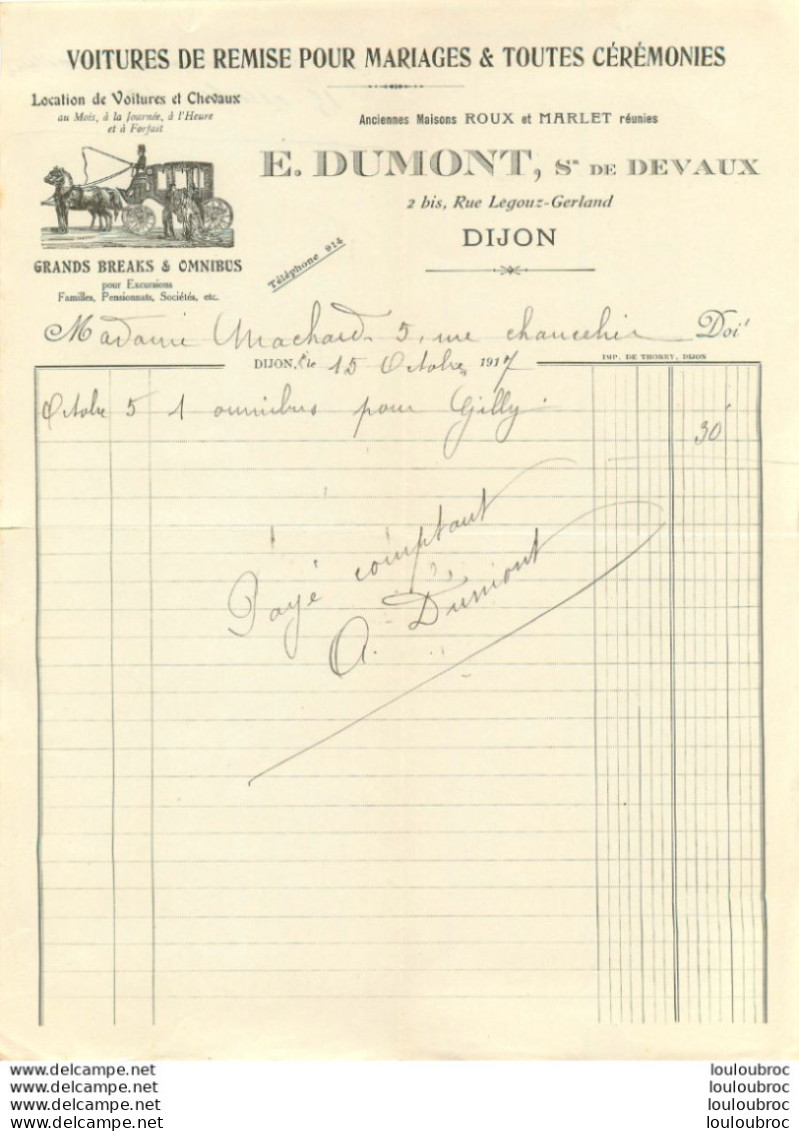 VOITURES DE REMISE POUR MARIAGES & TOUTES CÉRÉMONIES
Location de Voitures et Chevaux
au Mois, à la Journée, à l'Heure
et à Forfait
GRANDS BREAKS & OMNIBUS
pour Excursions
Familles, Pensionnats, Sociétés, etc.
Anciennes Maisons ROUX et MARLET réunies
E. DUMONT, Sr DE DEVAUX
2 bis, Rue Legouz-Gerland
DIJON
Téléphone 914
Madame Machard 5, rue chancelier Doit
DIJON, le 15 Octobre 1917
IMP. DE THOREY, DIJON
Octobre 5 1 omnibus pour Gilly 30
Payé comptant
A. Dumont
www.delcampe.net louloubroc
www.delcampe.net louloubroc
www.delcampe.net louloubroc
www.delcampe.net louloubroc